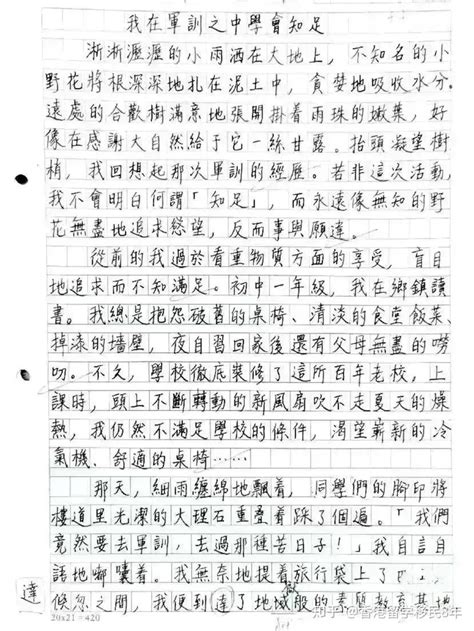 我在軍訓之中學會知足
淅淅瀝瀝的小雨洒在大地上，不知名的小
野花將根深深地扎在泥土中，貪婪地吸收水分。
遠處的合歡樹滿意地張開掛着雨珠的嫩葉，好
像在感謝大自然給于它一絲甘露。抬頭凝望樹
梢，我回想起那次軍訓的經歷。若非這次活動，
我不會明白何謂「知足」，而永遠像無知的野
花無盡地追求慾望，反而事與願違。
從前的我過於看重物質方面的享受，盲目
地追求而不知滿足。初中一年級，我在鄉鎮讀
書。我總是抱怨破舊的桌椅、清淡的食堂飯菜、
掉漆的墻壁，夜自習回家後還有父母無盡的嘮
叨。不久，學校徹底裝修了這所百年老校。上
課時，頭上不斷轉動的新風扇吹不走夏天的燥
熱，我仍然不滿足學校的條件，渴望嶄新的冷
氣機、舒適的桌椅……
那天，細雨纏綿地飄着，同學們的腳印將
樓道里光潔的大理石重疊着踩了個遍。「我們
竟然要去軍訓，去過那種苦日子！」我自言自
語地嘟囔着。我無奈地提着旅行袋上了
倏忽之間，我便到達了地域般的素質教育基地
達
20x21=420
知乎 @香港留學移民8年